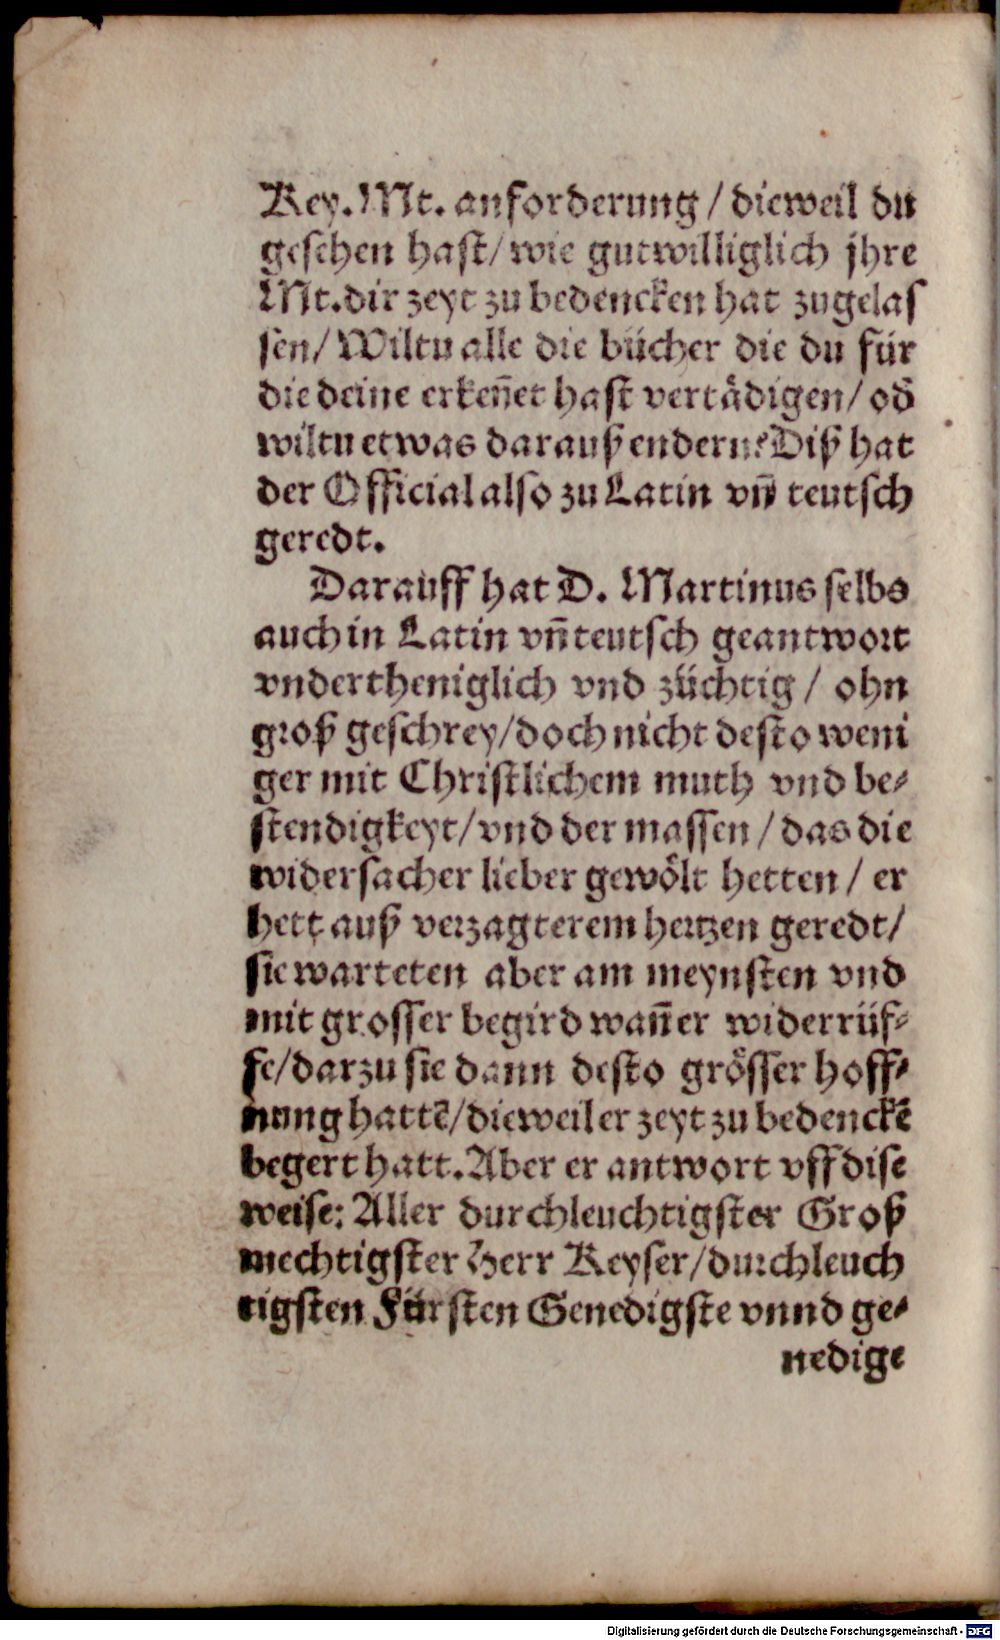 Key. Mt. anforderung / dieweil du
gesehen hast / wie gutwilliglich jhre
Mt. dir zeyt zu bedencken hat zugelas
sen / Wiltu alle die bücher die du für
die deine erkeñet hast vertädigen / od̃
wiltu etwas darauß endern? Diß hat
der Official also zu Latin vñ teutsch
geredt.
Darauff hat D. Martinus selbs
auch in Latin vñ teutsch geantwort
vndertheniglich vnd züchtig / ohn
groß geschrey / doch nicht desto weni
ger mit Christlichem muth vnd be⸗
stendigkeyt / vnd der massen / das die
widersacher lieber gewölt hetten / er
hett auß verzagterem hertzen geredt /
sie warteten aber am meynsten vnd
mit grosser begird wañ er widerrüf⸗
fe / darzu sie dann desto grösser hoff⸗
nung hattẽ / dieweil er zeyt zu bedenckẽ
begert hatt. Aber er antwort vff dise
weise: Aller durchleuchtigster Groß
mechtigster Herr Keyser / durchleuch
tigsten Fürsten Genedigste vnnd ge⸗
nedige
Digitalisierung gefördert durch die Deutsche Forschungsgemeinschaft - DFG